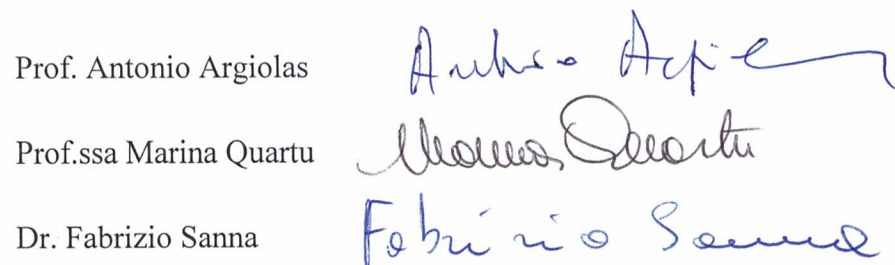 Prof. Antonio Argiolas Antonio Argiolas
Prof.ssa Marina Quartu Marina Quartu
Dr. Fabrizio Sanna Fabrizio Sanna